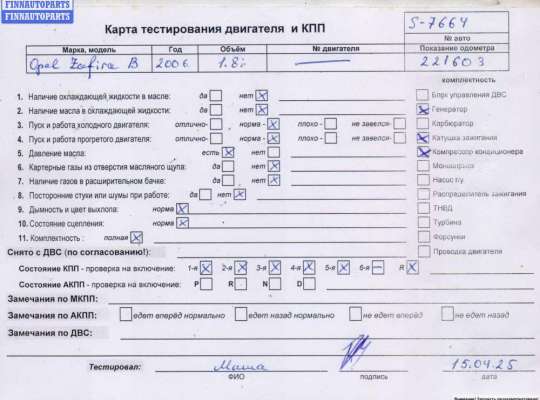 FINNAUTOPARTS
FINNAUTOPARTS
Карта тестирования двигателя и КПП
S-7664
№ авто
Марка, модель Год Объём № двигателя Показание одометра
Opel Zafira B 2006 1.8i — 221603
комплектность
1. Наличие охлаждающей жидкости в масле: да нет X Блрк управления ДВС
2. Наличие масла в охлаждающей жидкости: да нет X Генератор
3. Пуск и работа холодного двигателя: отлично- норма - X плохо - не завелся- Карбюратор
4. Пуск и работа прогретого двигателя: отлично- норма - X плохо - не завелся- Катушка зажигания
5. Давление масла: есть X нет Компрессор кондиционера
6. Картерные газы из отверстия масляного щупа: да нет X Моновпрыск
7. Наличие газов в расширительном бачке: да нет X Насос гу
8. Посторонние стуки или шумы при работе: да нет X Распределитель зажигания
9. Дымность и цвет выхлопа: норма X ТНВД
10. Состояние сцепления: норма X Турбина
11. Комплектность : полная X Форсунки
Снято с ДВС (по согласованию!): Проводка двигателя
Состояние КПП - проверка на включение: 1-я X 2-я X 3-я X 4-я X 5-я X 6-я — R X
Состояние АКПП - проверка на включение: P R N D
Замечания по МКПП:
Замечания по АКПП: едет вперёд нормально едет назад нормально не едет вперёд не едет назад
Замечания по ДВС:
Тестировал: Маша 15.04.25
ФИО подпись дата